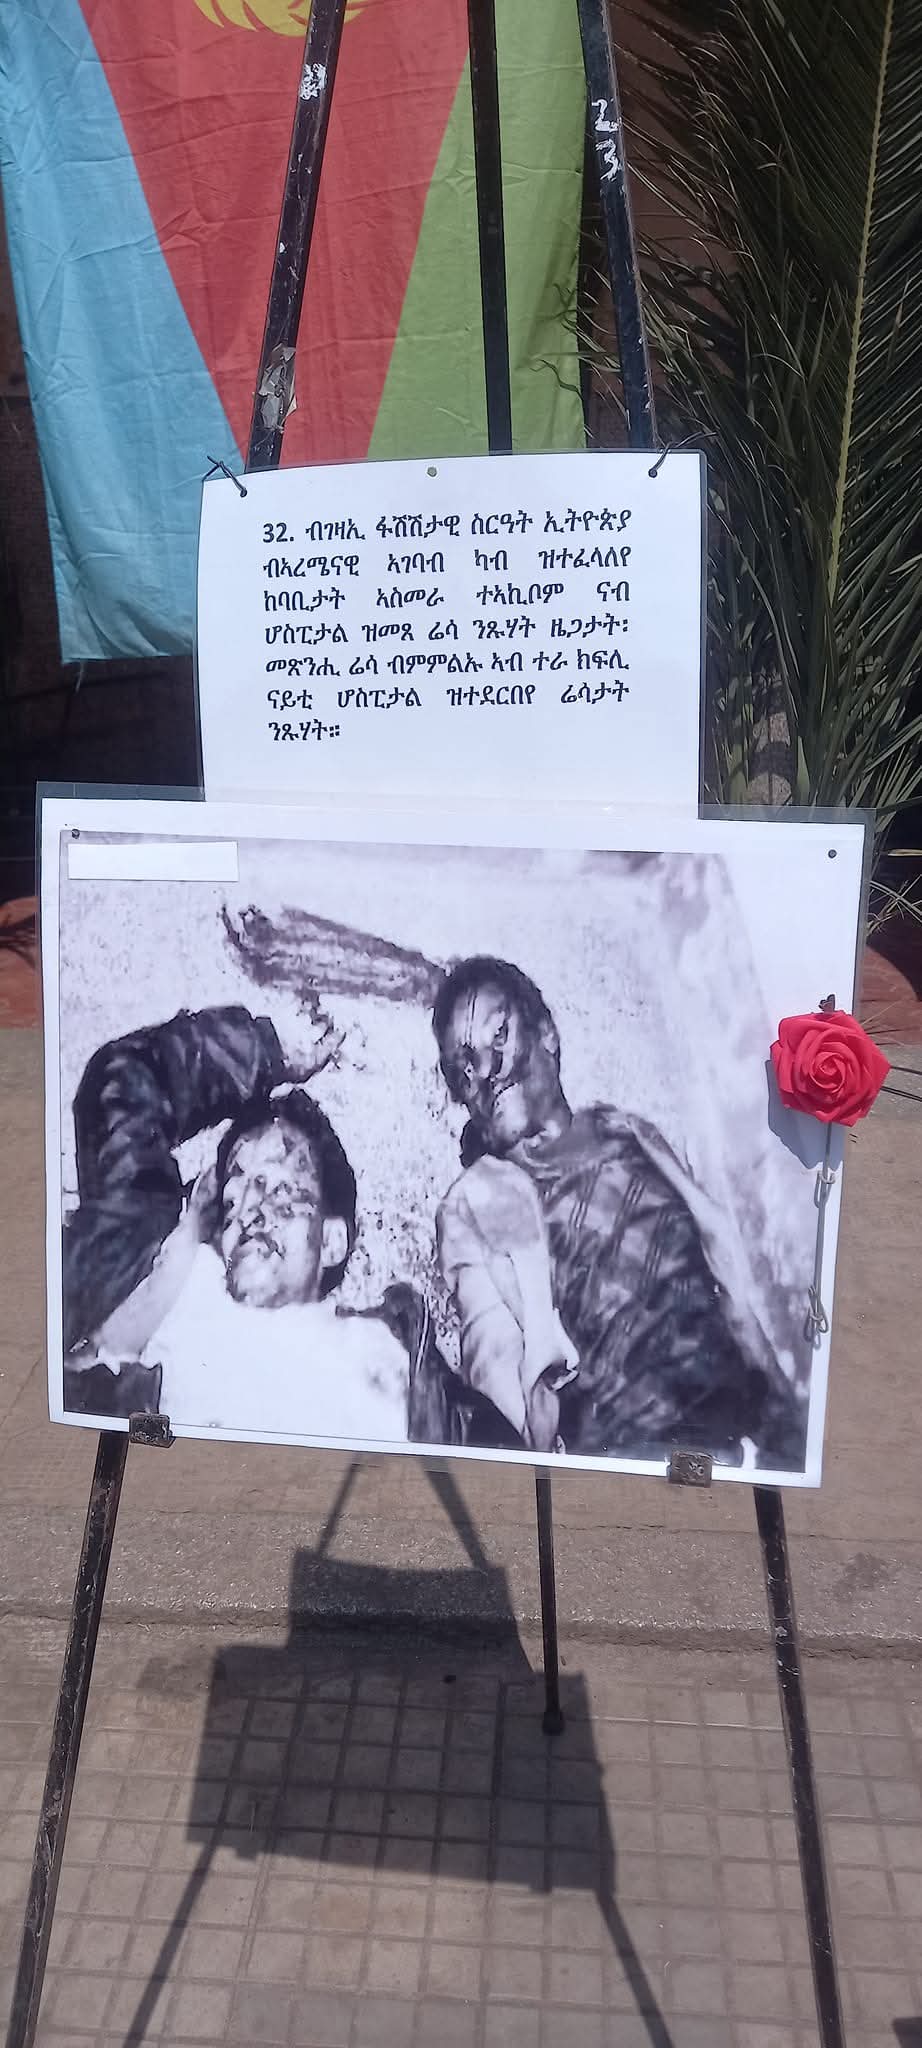 23
32. ብገዛኢ ፋሽሽታዊ ስርዓት ኢትዮጵያ
ብኣረሜናዊ ኣገባብ ካብ ዝተፈላለየ
ከባቢታት ኣስመራ ተኣኪቦም ናብ
ሆስፒታል ዝመጸ ሬሳ ንጹሃት ዜጋታት፡
መጽንሒ ሬሳ ብምምልኡ ኣብ ተራ ክፍሊ
ናይቲ ሆስፒታል ዝተደርበየ ሬሳታት
ንጹሃት።